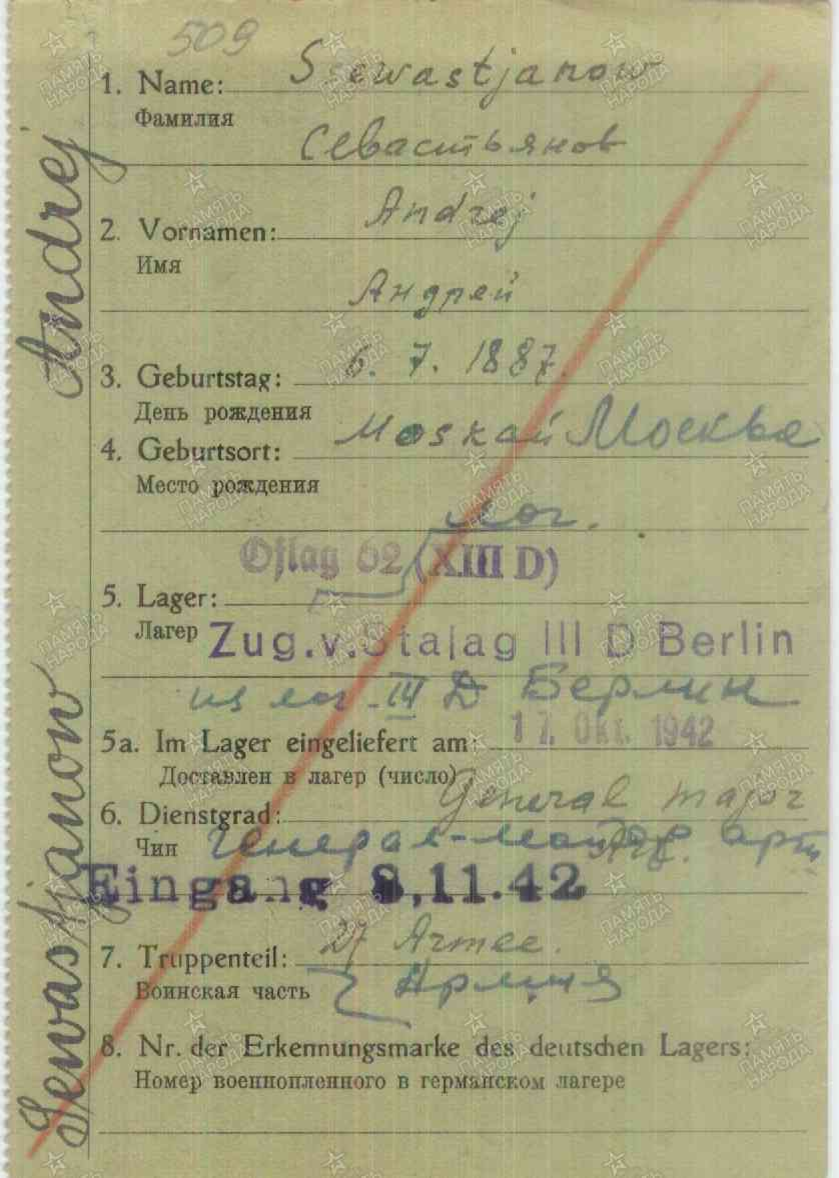 509
1. Name: Ssewastjanow
Фамилия
Севастьянов
2. Vornamen: Andrej
Имя
Андрей
3. Geburtstag: 6. 7. 1887.
День рождения
4. Geburtsort: Москва
Место рождения
лаг.
Oflag 62 (XIII D)
5. Lager:
Лагер Zug.v.Stalag III D Berlin
из лаг. III D Берлин
5a. Im Lager eingeliefert am: 17. Okt. 1942
Доставлен в лагер (число)
6. Dienstgrad: General major
Чин Генерал-майор арт
Eingang 8.11.42
7. Truppenteil: 27 Armee.
Воинская часть Армия
8. Nr. der Erkennungsmarke des deutschen Lagers:
Номер военнопленного в германском лагере
Sewastjanow Andrej
ПАМЯТЬ НАРОДА